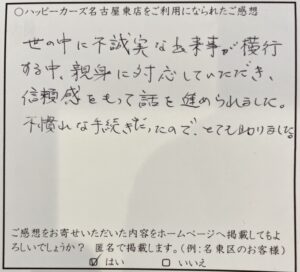 ○ハッピーカーズ名古屋東店をご利用になられたご感想
世の中に不誠実な出来事が横行
する中、親身に対応していただき、
信頼感をもって話を進められました。
不慣れな手続きだったので、とても助りました
ご感想をお寄せいただいた内容をホームページへ掲載してもよ
ろしいでしょうか? 匿名で掲載します。(例:名東区のお客様)
☑ はい □ いいえ